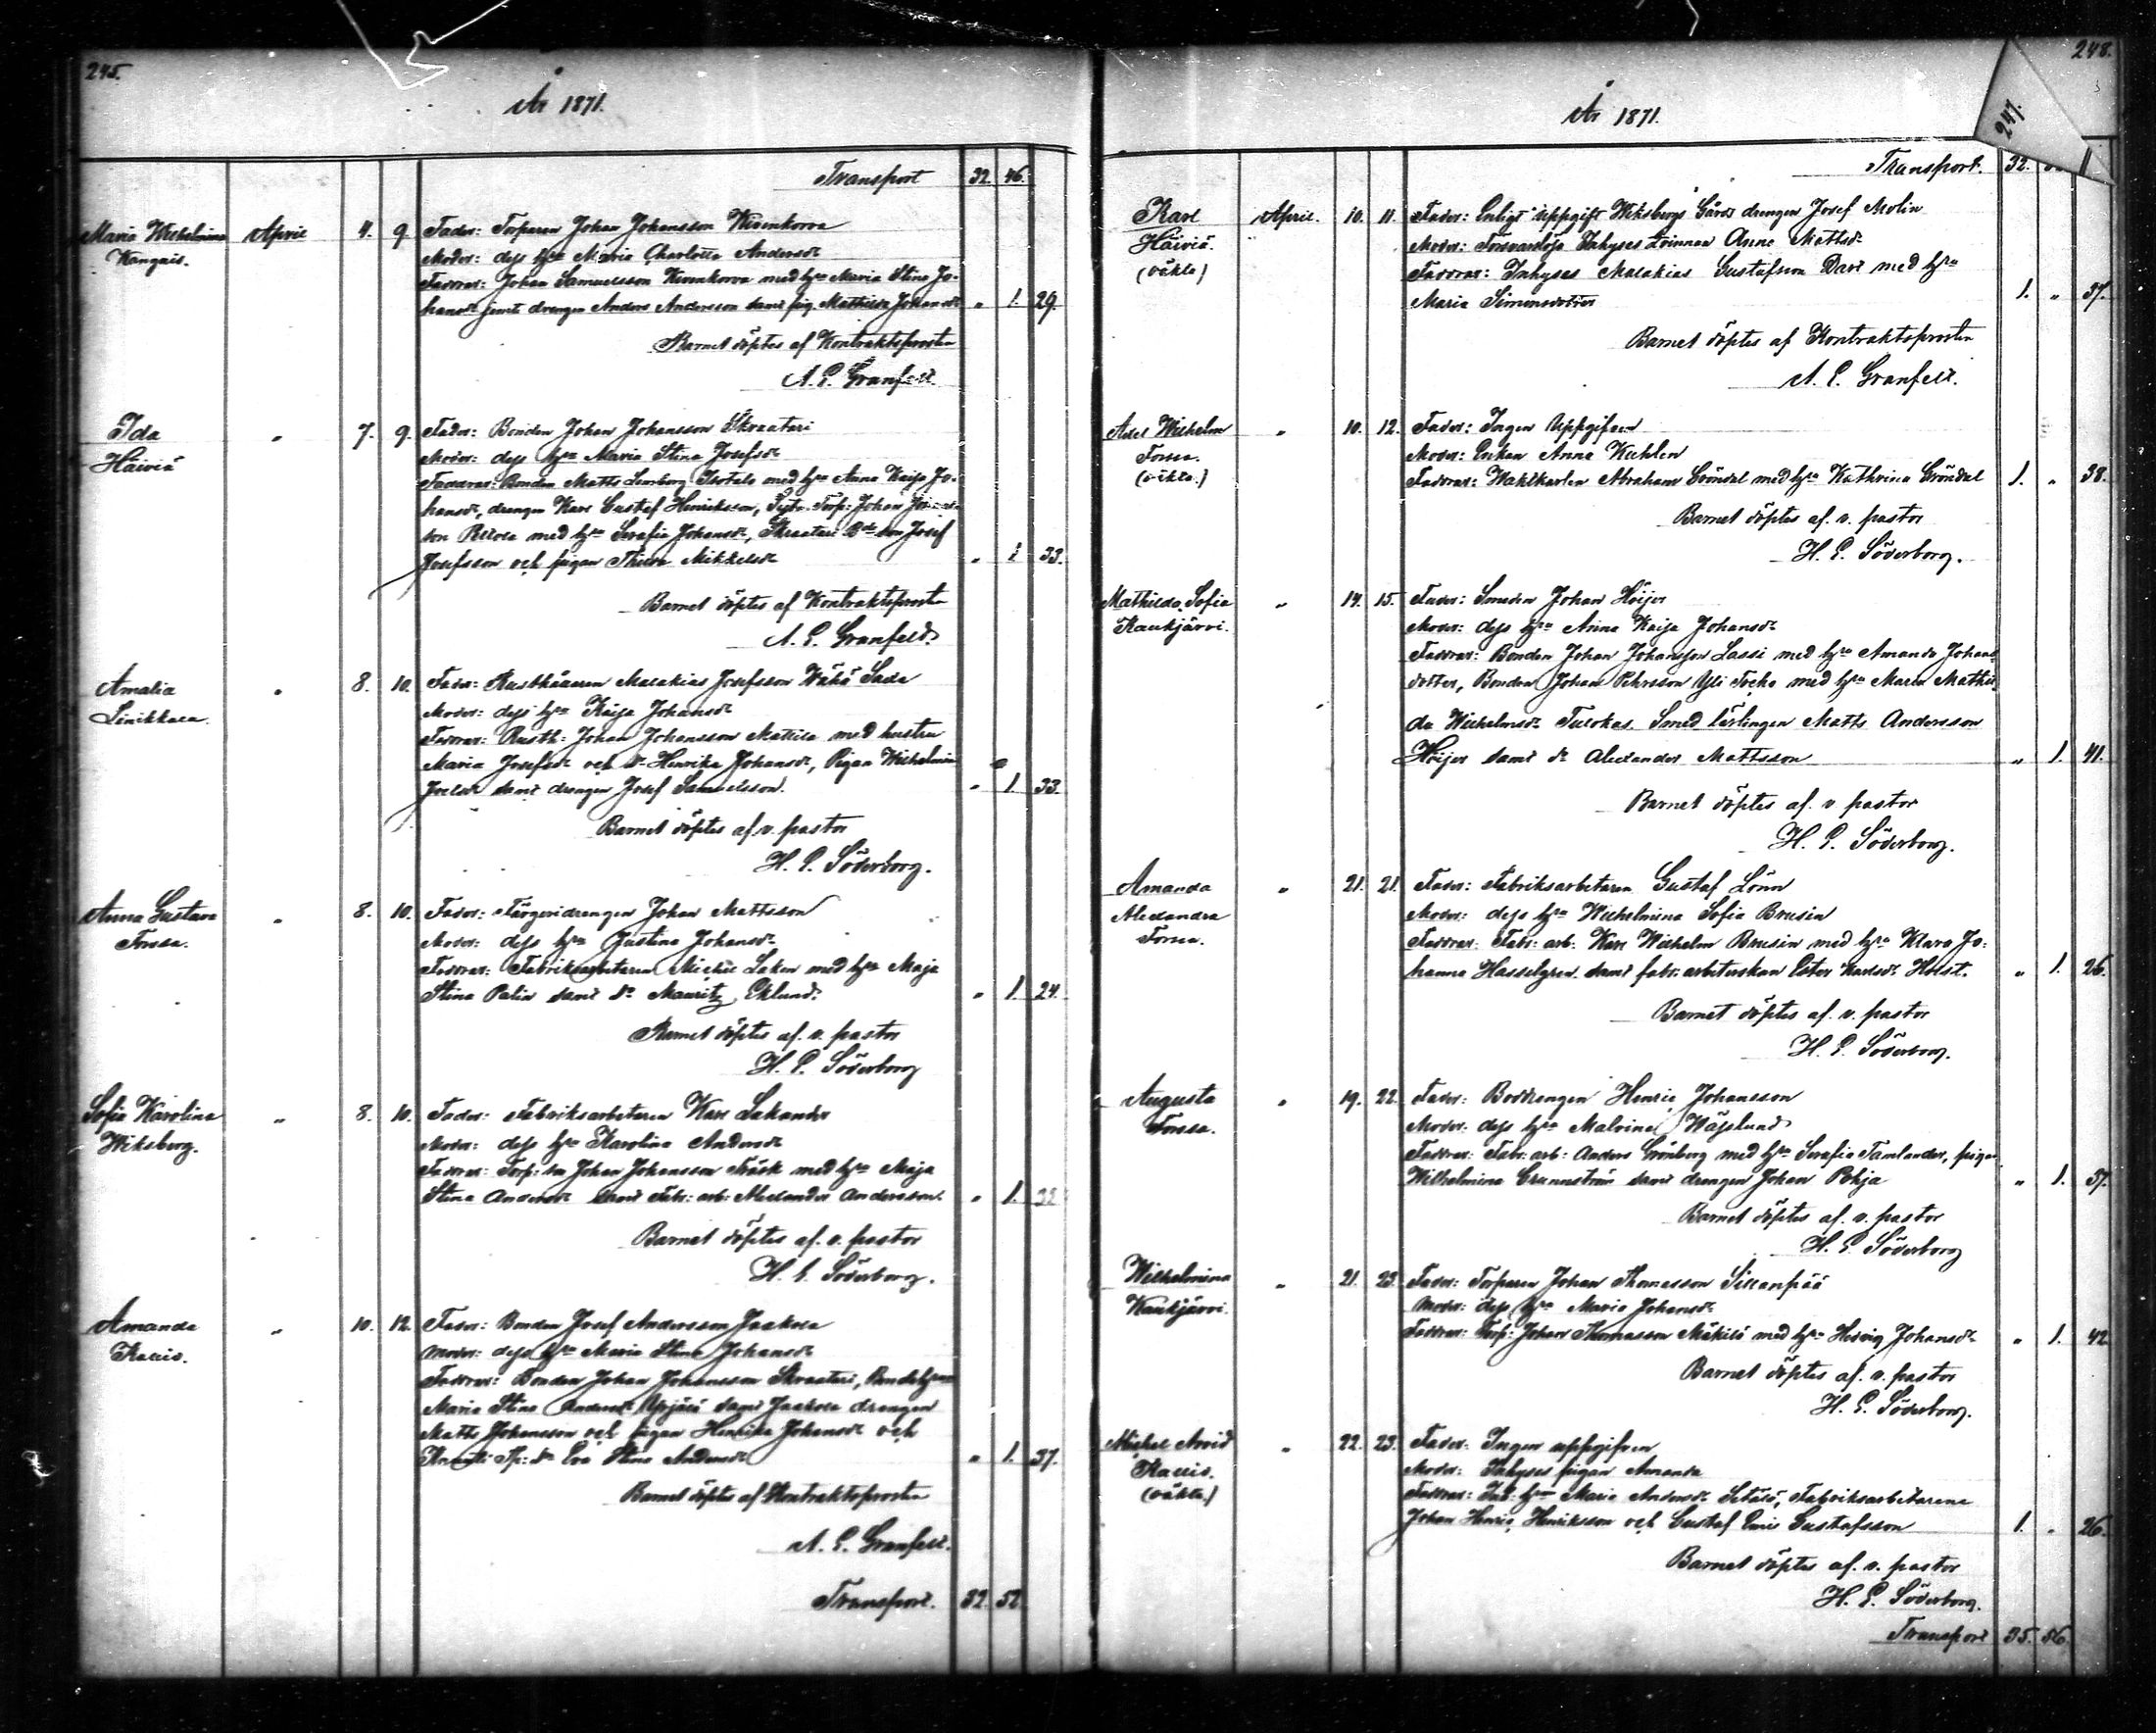 245.
År 1871.
Transport 32. 46.
Maria Wilhelmina April 4. 9. Fader: Torparen Johan Johansson
Kangais.
Moder: dess hu Maria Charlotta Andersdr
Faddrar: Johan Samuelsson med hu Maria Stina Jo-
hansdr jemte drengen Anders Andersson samt pig. Mathilda Johansdr " 1. 29.
Barnet döptes af Kontraktsprosten
A. E. Granfelt.
Ida " 7. 9. Fader: Bonden Johan Johansson Skraatari
Häiviä
Moder: dess hu Maria Stina Josefsdr
Faddrar: Bonden Matts Isotalo med hu Anna Kaisa Jo-
hansdr, drengen Karl Gustaf Henriksson, Torp: Johan
son med hu Serafia Johansdr, Skraatari Josef
Josefsson och pigan Mikkelsdr " 1 33.
Barnet döptes af Kontraktsprosten
A. E. Granfeld.
Amalia " 8. 10. Fader: Rusthållaren Malakias Josefsson Wähä
Linikkala.
Moder: dess hu Kaisa Johansdr
Faddrar: Rusth: Johan Johansson Mattila med hustru
Maria Josefsdr och dr Henrika Johansdr, Pigan Wilhelmina
Joelsdr samt drengen Josef Samuelsson. " 1 33.
Barnet döptes af. v. pastor
H. E. Söderborg.
Anna Gustava " 8. 10. Fader: Färgeridrengen Johan Mattsson
Forssa.
Moder: dess hu Justina Johansdr
Faddrar: Fabriksarbetaren Michel med hu Maja
Stina Palin samt Dr Mauritz Eklund. " 1. 24.
Barnet döptes af. v. pastor
H. E. Söderborg
Sofia Karolina " 8. 10. Fader: Fabriksarbetaren Karl Lakander
Wiksberg.
Moder: dess hu Karolina Andersdr
Faddrar: Torp: son Johan Johansson Träsk med hu Maja
Stina Andersdr samt Fabr: arb: Alexander Andersson. " 1. 32
Barnet döptes af. v. pastor
H. E. Söderborg.
Amanda " 10. 12. Fader: Bonden Josef Andersson Jaakola
Kallio.
Moder: dess hu Maria Stina Johansdr
Faddrar: Bonden Johan Johansson Skraatari,
Maria Stina Andersdr samt Jaakola drengen
Matts Johansson och pigan Henrika Johansdr och
Eva Stina Andersdr " 1. 37.
Barnet döptes af Kontraktsprosten
A. E. Granfelt.
Transport. 32. 52
248.
247.
År 1871.
Transport. 32.
Karl April. 10. 11. Fader: Enligt uppgift Wiksbergs Gårds drengen Josef Molin
Häiviä.
(oäkta)
Moder: Försvarslösa Inhyses qvinnan Anna Mattsdr
Faddrar: Inhyses Malakias Gustafsson med hu
Maria Simonsdotter 1. " 37.
Barnet döptes af Kontraktsprosten
A. E. Granfelt.
Axel Wilhelm " 10. 12. Fader: Ingen Uppgifven
Forssa.
(oäkta.)
Moder: Enkan Anna
Faddrar: Waktkarlen Abraham Gröndal med hu Kathrina Gröndal 1. " 38.
Barnet döptes af. v. pastor
H. E. Söderborg.
Mathilda Sofia " 14. 15. Fader: Smeden Johan Höijer
Kaukjärvi.
Moder: dess hu Anna Kaisa Johansdr
Faddrar: Bonden Johan Johansson Lassi med hu Amanda Johans-
dotter, Bonden Johan Pehrsson Yli med hu Maria Mathil-
da Wilhelmsdr Tulokas. Smed lärlingen Matts Andersson
Höijer samt dr Alexander Mattsson " 1. 41.
Barnet döptes af. v. pastor
H. E. Söderborg.
Amanda " 21. 21. Fader: Fabriksarbetaren Gustaf Lönn
Alexandra
Forssa.
Moder: dess hu Wilhelmina Sofia Brusin
Faddrar: Fabr: arb: Karl Wilhelm Brusin med hu Klara Jo:
hanna Hasselgren samt fabr: arbeterskan Ester Karlsdr Holst. " 1. 26.
Barnet döptes af. v. pastor
H. E. Söderborg.
Augusta " 19. 22. Fader: Boddrengen Henric Johansson
Forssa.
Moder: dess hu Malvina Wäglund
Faddrar: Fabr: arb: Anders Grönberg med hu Serafia Tamlander, pigan
Wilhelmina samt drengen Johan Pohja " 1. 37.
Barnet döptes af. v. pastor
H. E. Söderborg
Wilhelmina " 21. 23. Fader: Torparen Johan Thomasson Sillanpää
Kaukjärvi.
Moder: dess hu Maria Johansdr
Faddrar: Torp: Johan Thomasson Mäkilä med hu Hedvig Johansdr. " 1. 42
Barnet döptes af. v. pastor
H. E. Söderborg.
Michel Arvid " 22. 23. Fader: Ingen uppgifven
Kallio.
(oäkta.)
Moder: Inhyses pigan Amanda
Faddrar: Maria Andersdr Setälä, Fabriksarbetarene
Johan Henric Henriksson och Gustaf Emil Gustafsson 1. " 26.
Barnet döptes af. v. pastor
H. E. Söderborg.
Transport 35. 56.